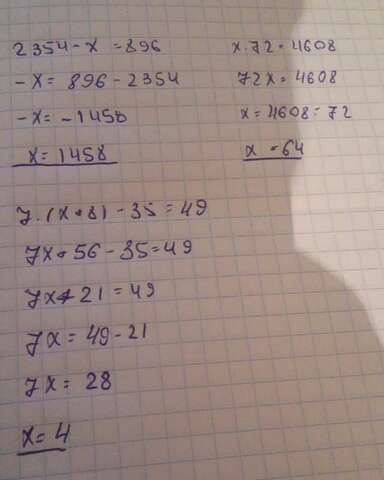 2354 - x = 896
- x = 896 - 2354
- x = - 1458
x = 1458
x . 72 = 4608
72x = 4608
x = 4608 : 72
x = 64
7 . (x + 8) - 35 = 49
7x + 56 - 35 = 49
7x + 21 = 49
7x = 49 - 21
7x = 28
x = 4